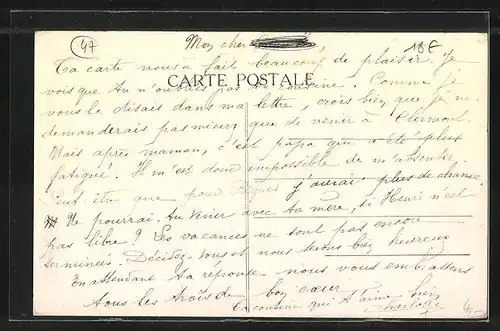 47
Mon cher
18E
Ta carte nous a fait beaucoup de plaisir. Je
vois que tu n'oublies pas ta cousine. Comme je
CARTE POSTALE
vous le disais dans ma lettre, crois bien que je ne
demanderais pas mieux que de venir à Clermont
Mais après maman, c'est papa qui a été plus
fatigué. Il m'est donc empossible de m'absenter.
Peut être que pour Pâques j'aurai plus de chance.
Ne pourrai. tu venir avec ta mère, si Henri n'est
pas libre? Les vacances ne sont pas encore
terminées. Décidez-vous et nous serons bien heureux
En attendant ta réponse nous vous embrassons
tous les trois de bon cœur
Ta cousine qui t'aime bien
Charlotte